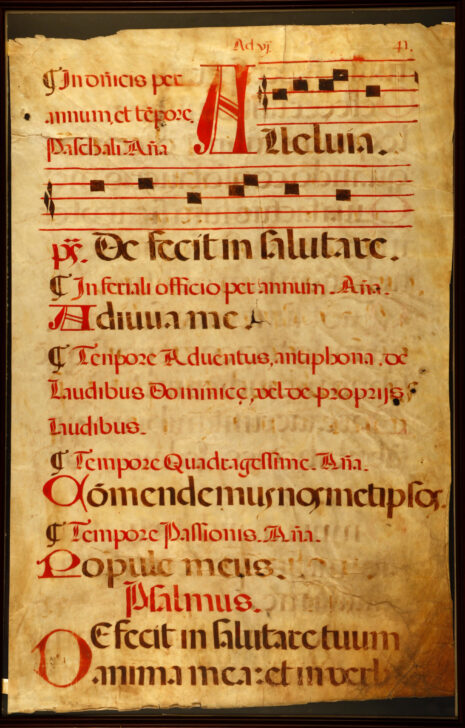 Ad vj
41.
¶ In dñicis per
annum, et tẽpore
Paschali. Aña
Alleluia.
ps. De fecit in salutare.
¶ In feriali officio per annum. Aña.
Adiuua me
¶ Tenpore Aduentus, antiphona, de
Laudibus Dominicę, vel de proprijs
Laudibus.
¶ Tempore Quadragessime. Aña.
Cómendemus nosmetipsos.
¶ Tempore Passionis. Aña.
Popule meus.
Psalmus.
DEfecit in salutare tuum
anima mea: et in verb